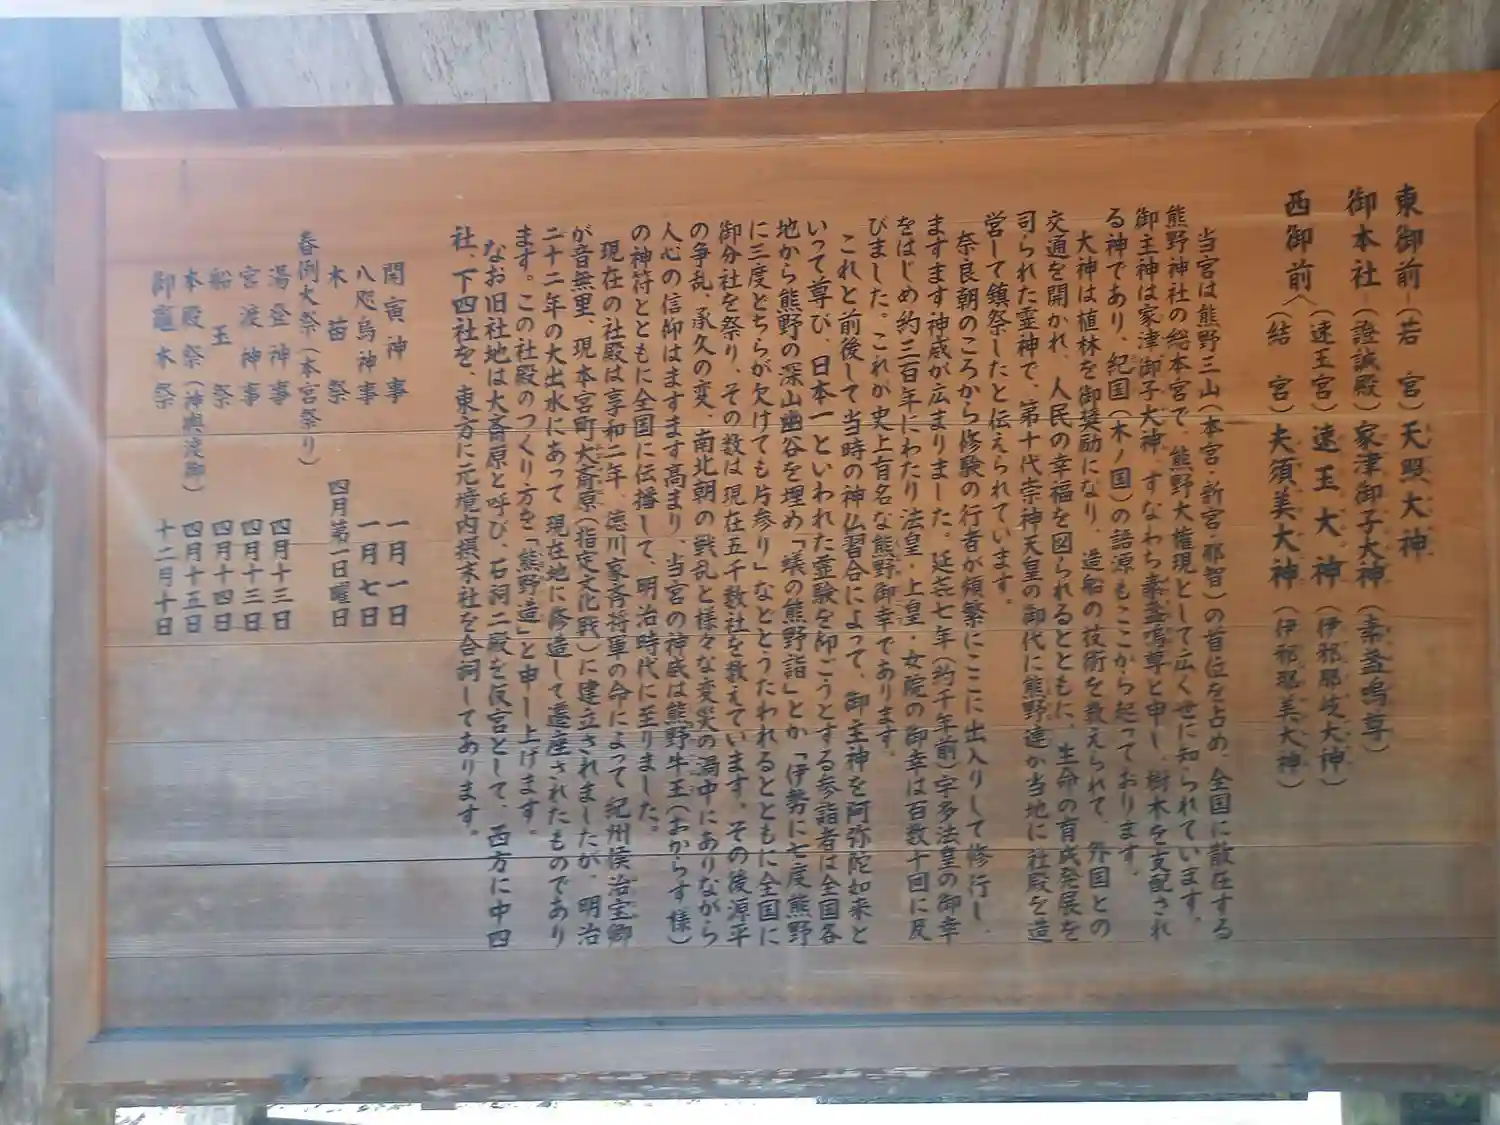 東御前―(若宮)天照大神
御本社―(證誠殿)家津御子大神(素盞嗚尊)
西御前〈(速玉宮)速玉大神(伊邪那岐大神)
(結宮)夫須美大神(伊邪那美大神)
当宮は熊野三山(本宮・新宮・那智)の首位を占め、全国に散在する
熊野神社の総本宮で、熊野大権現として広く世に知られています。
御主神は家津御子大神、すなわち素盞嗚尊と申し、樹木を支配され
る神であり、紀国(木ノ国)の語源もここから起っております。
大神は植林を御奨励になり、造船の技術を教えられて、外国との
交通を開かれ、人民の幸福を図られるとともに、生命の育成発展を
司られた霊神で、第十代崇神天皇の御代に熊野連が当地に社殿を造
営して鎮祭したと伝えられています。
奈良朝のころから修験の行者が頻繁にここに出入りして修行し、
ますます神威が広まりました。延喜七年(約千年前)宇多法皇の御幸
をはじめ約三百年にわたり法皇・上皇・女院の御幸は百数十回に及
びました。これが史上有名な熊野御幸であります。
これと前後して当時の神仏習合によって、御主神を阿弥陀如来と
いって尊び、日本一といわれた霊験を仰ごうとする参詣者は全国各
地から熊野の深山幽谷を埋め「蟻の熊野詣」とか「伊勢に七度熊野
に三度どちらが欠けても片参り」などとうたわれるとともに全国に
御分社を祭り、その数は現在五千数社を数えています。その後源平
の争乱、承久の変、南北朝の戦乱と様々な変災の渦中にありながら
人心の信仰はますます高まり、当宮の神威は熊野牛王(おからす様)
の神符とともに全国に伝播して、明治時代に至りました。
現在の社殿は享和二年、徳川家斉将軍の命によって紀州侯治宝卿
が音無里、現本宮町大斎原(指定文化財)に建立されましたが、明治
二十二年の大出水にあって現在地に修造して遷座されたものであり
ます。この社殿のつくり方を「熊野造」と申し上げます。
なお旧社地は大斎原と呼び、石祠二殿を仮宮として、西方に中四
社、下四社を、東方に元境内摂末社を合祠してあります。
開寅神事 一月一日
八咫烏神事 一月七日
木苗祭 四月第一日曜日
春例大祭(本宮祭り)
湯登神事 四月十三日
宮渡神事 四月十三日
船玉祭 四月十四日
本殿祭(神輿渡御) 四月十五日
御竈木祭 十二月十日